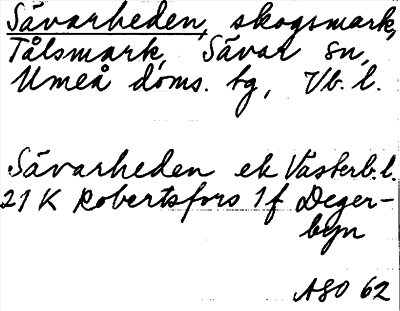 Sävarheden, skogsmark,
Tålsmark, Sävar sn,
Umeå doms. tg, Vb. l.
Sävarheden ek Västerb.l.
21 K Robertsfors 1f Deger-
byn
ASO 62